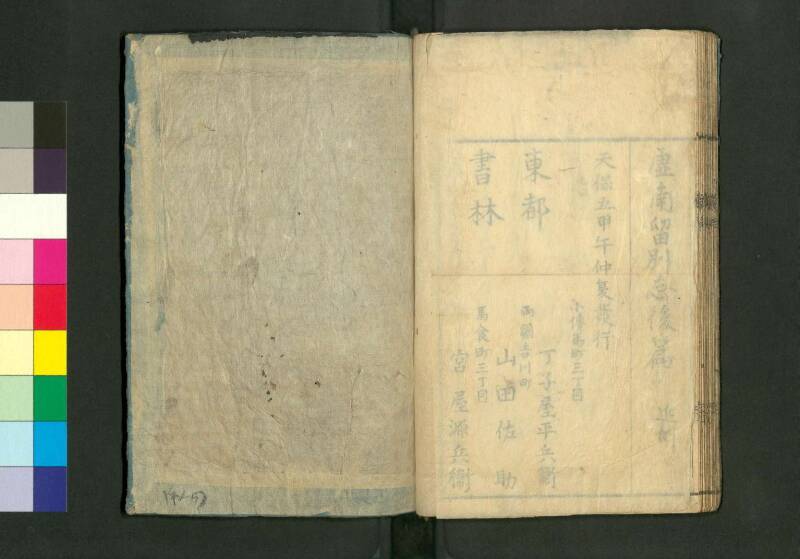 虚南留別志後篇 近刻
天保五甲午仲夏発行
東都
書林
小傳馬町三丁目
丁子屋平兵衛
両国吉川町
山田佐助
馬食町三丁目
宮屋源兵衛